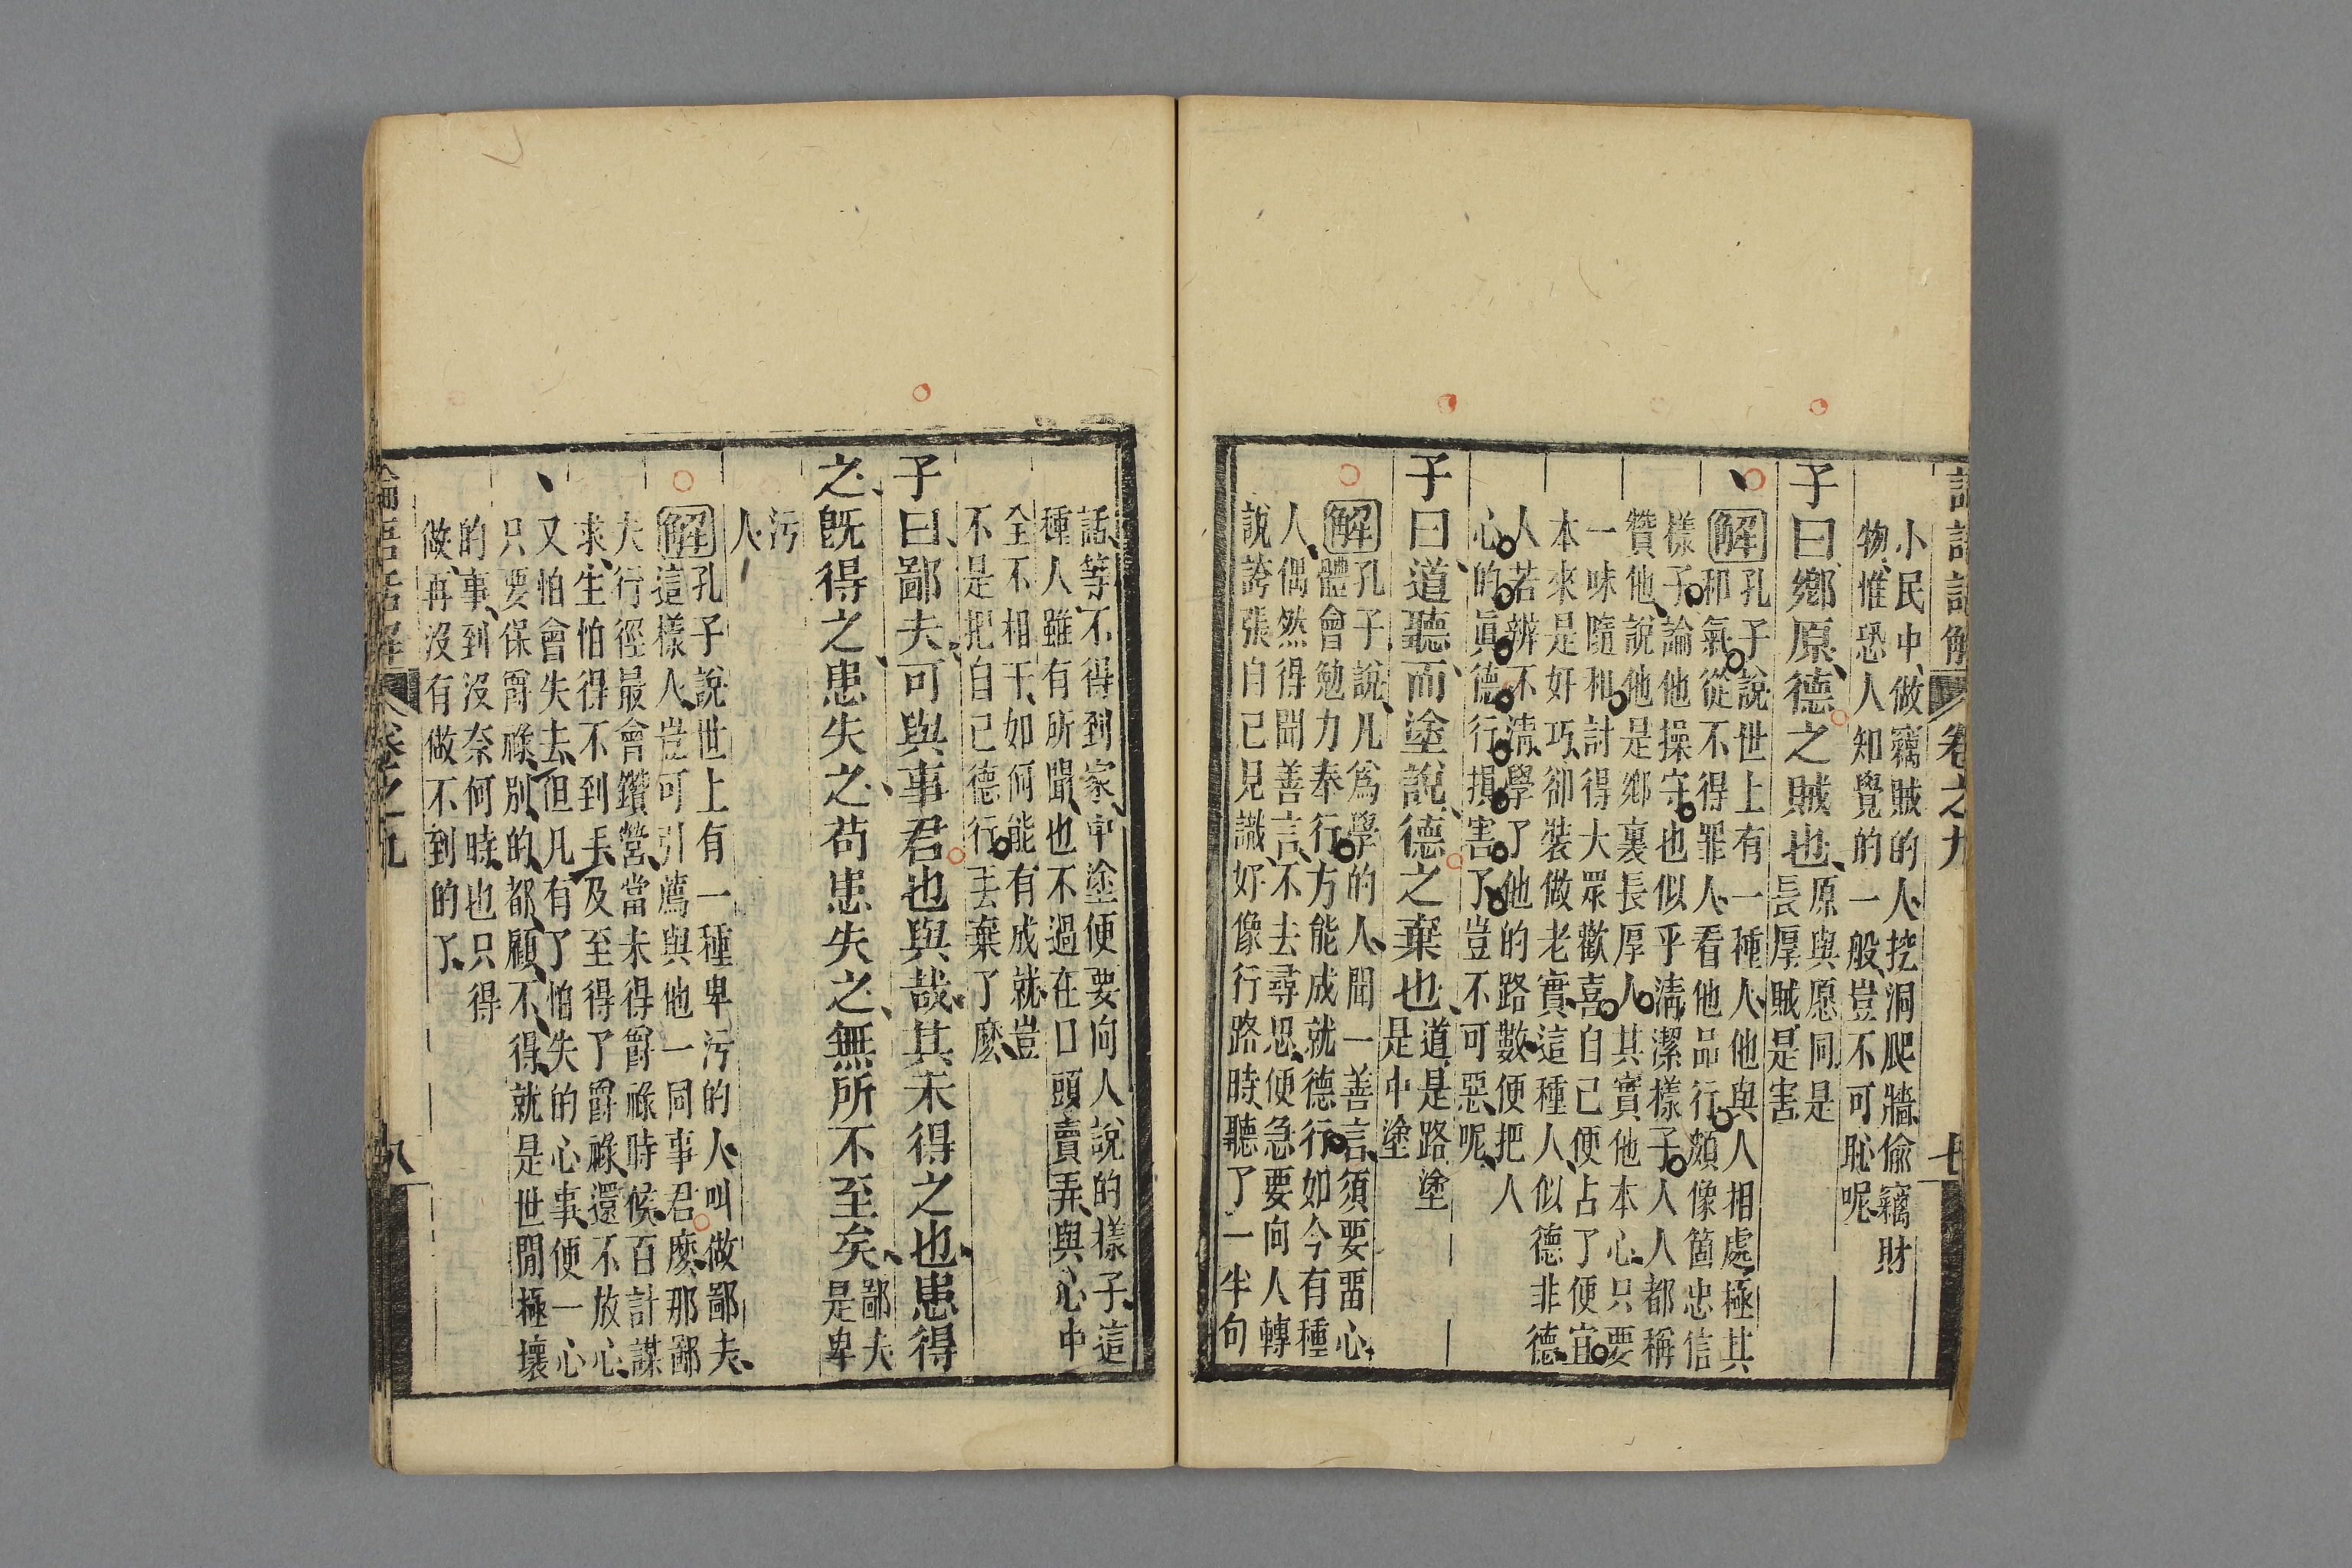 小民中做竊賊的人挖洞爬牆偷竊財
物惟恐人知覺的一般豈不可恥呢
子曰鄉原德之賊也原與愿同是
長厚賊是害
解孔子說世上有一種人他與人相處極其
和氣從不得罪人看他品行頗像箇忠信
樣子論他操守也似乎淸潔樣子人人都稱
贊他說他是鄉裏長厚人其實他本心只要
一味隨和討得大眾歡喜自己便占了便宜
本來是奸巧卻裝做老實這種人似德非德
人若辨不淸學了他的路數便把人
心的眞德行損害了豈不可惡呢
子曰道聽而塗說德之棄也道是路塗
是中塗
解孔子說凡爲學的人聞一善言須要畱心
體會勉力奉行方能成就德行如今有種
人偶然得聞善言不去尋思便急要向人轉
說誇張自己見識好像行路時聽了一半句
話等不得到家中塗便要向人說的樣子這
種人雖有所聞也不過在口頭賣弄與心中
全不相干如何能有成就豈
不是把自己德行丟棄了麽
子曰鄙夫可與事君也與哉其未得之也患得
之旣得之患失之苟患失之無所不至矣鄙夫
是卑
污
人
解孔子說世上有一種卑污的人叫做鄙夫
這樣人豈可引薦與他一同事君麽那鄙
夫行徑最會鑽營當未得爵祿時候百計謀
求生怕得不到手及至得了爵祿還不放心
又怕會失去但凡有了怕失的心事便一心
只要保爵祿別的都顧不得就是世閒極壞
的事到沒奈何時也只得
做再沒有做不到的了
論語話解 卷之九 八